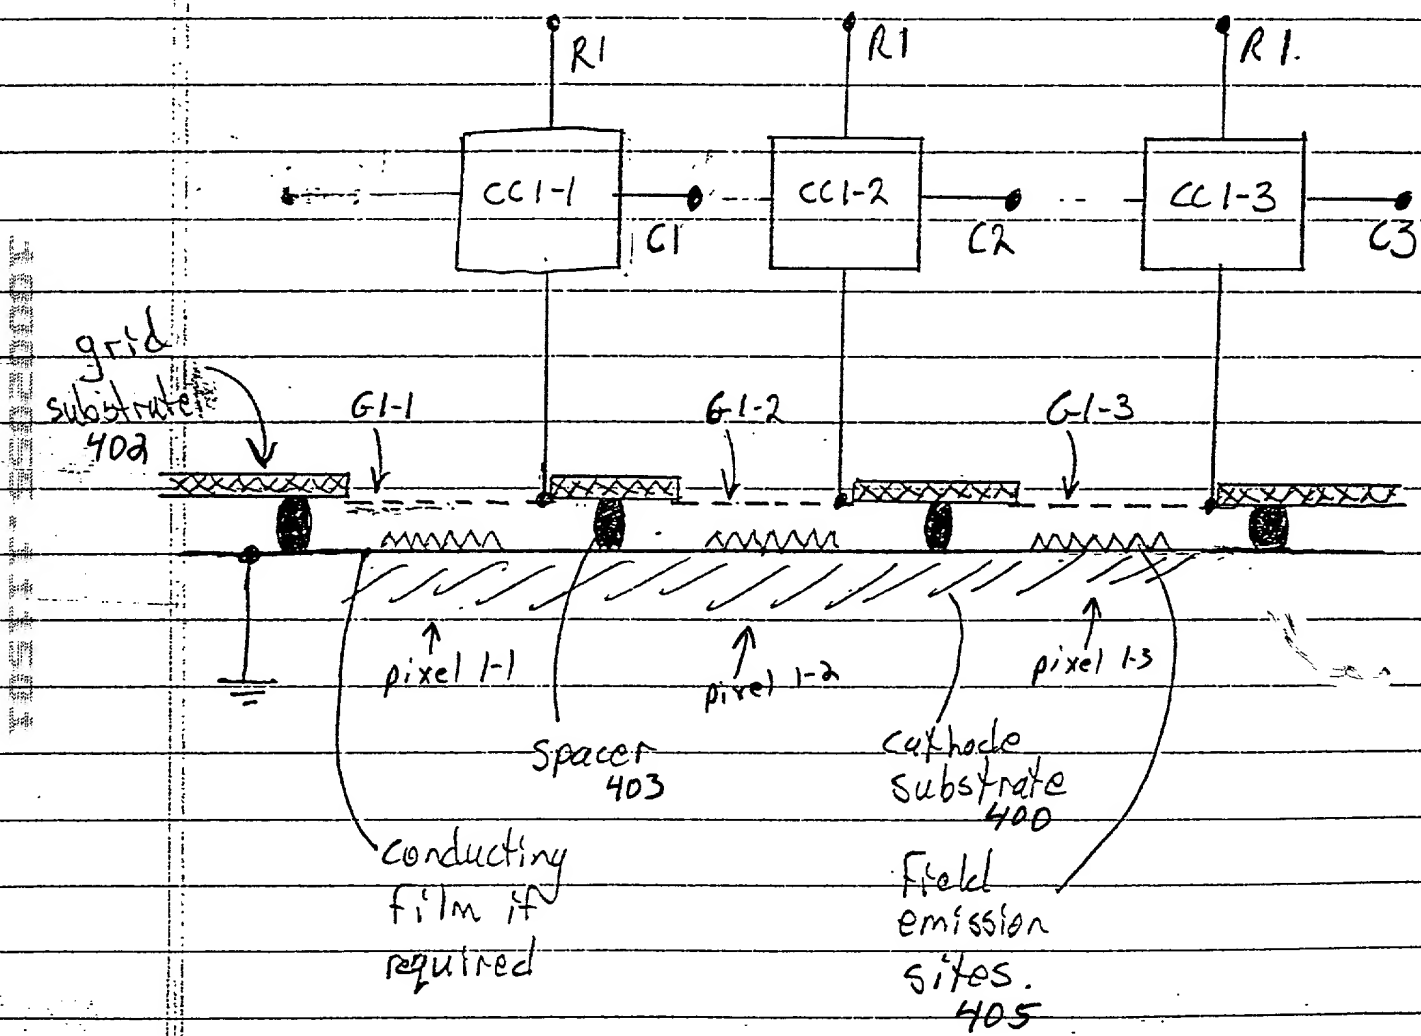 R1
R1
R1.
CC1-1
CC1-2
CC1-3
C1
C2
C3
grid
substrate
402
G1-1
G1-2
G1-3
pixel 1-1
pixel 1-2
pixel 1-3
spacer
403
cathode
substrate
400
conducting
film if
required
Field
emission
sites.
405